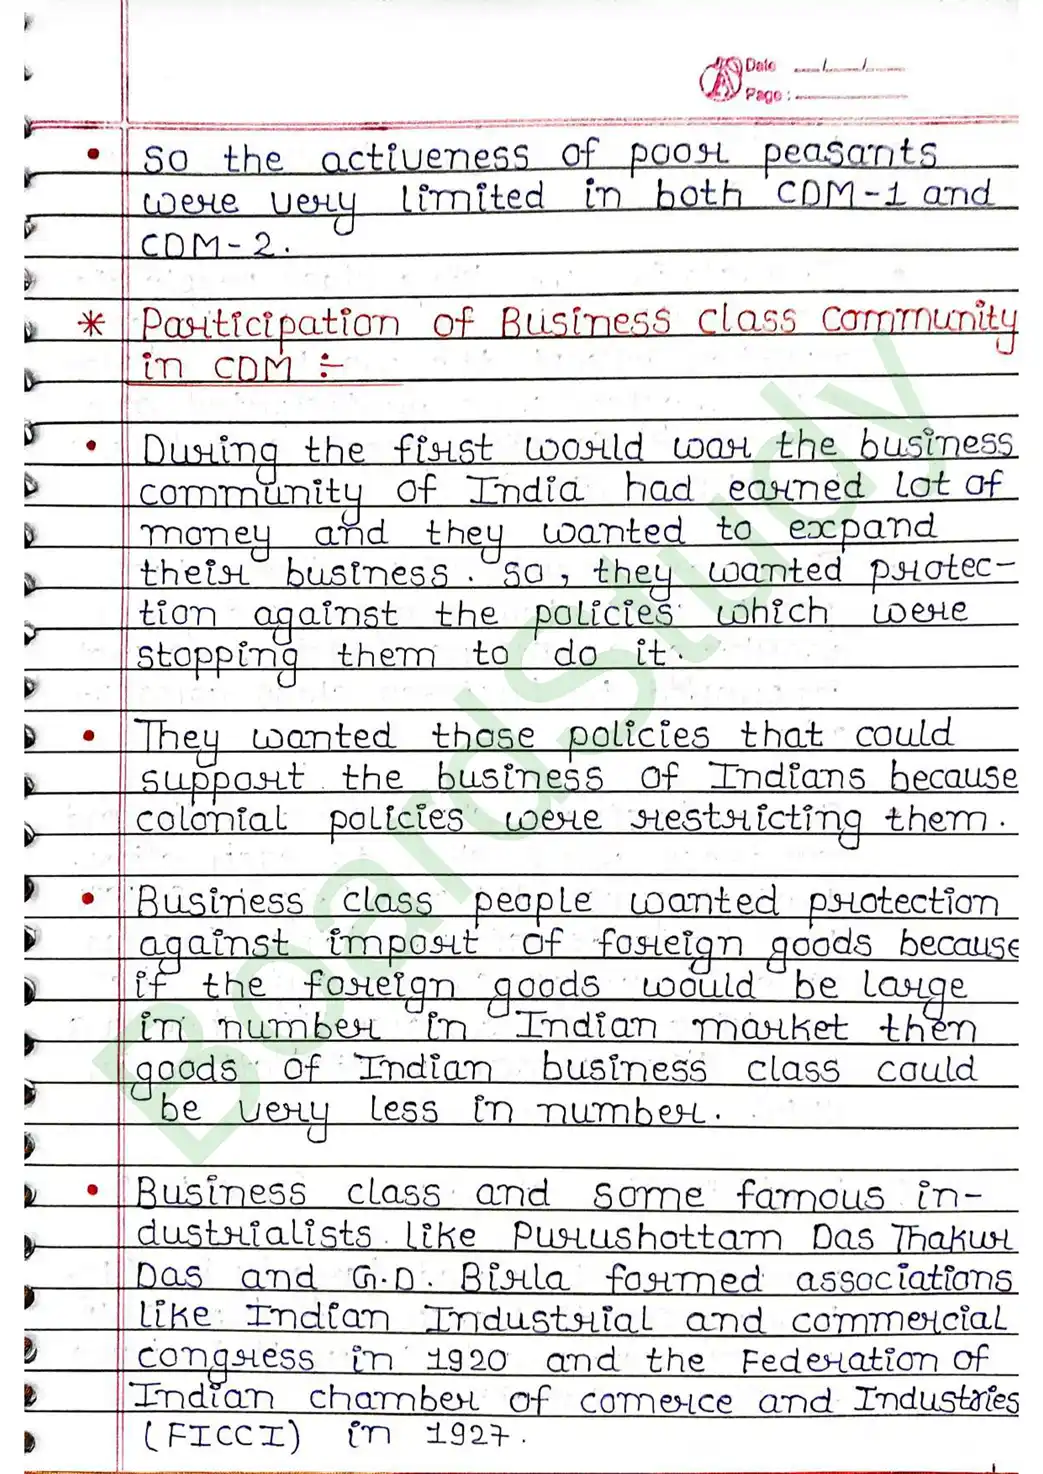 Date __/__/__
Page : ______
• So the activeness of poor peasants
were very limited in both CDM-1 and
CDM-2.
* Participation of Business class community
in CDM :-
• During the first world war the business
community of India had earned lot of
money and they wanted to expand
their business. So, they wanted protec-
tion against the policies which were
stopping them to do it.
• They wanted those policies that could
support the business of Indians because
colonial policies were restricting them.
• Business class people wanted protection
against import of foreign goods because
if the foreign goods would be large
in number in Indian market then
goods of Indian business class could
be very less in number.
• Business class and some famous in-
dustrialists like Purushottam Das Thakur
Das and G.D. Birla formed associations
like Indian Industrial and commercial
congress in 1920 and the Federation of
Indian chamber of comerce and Industries
(FICCI) in 1927.
BoardStudy